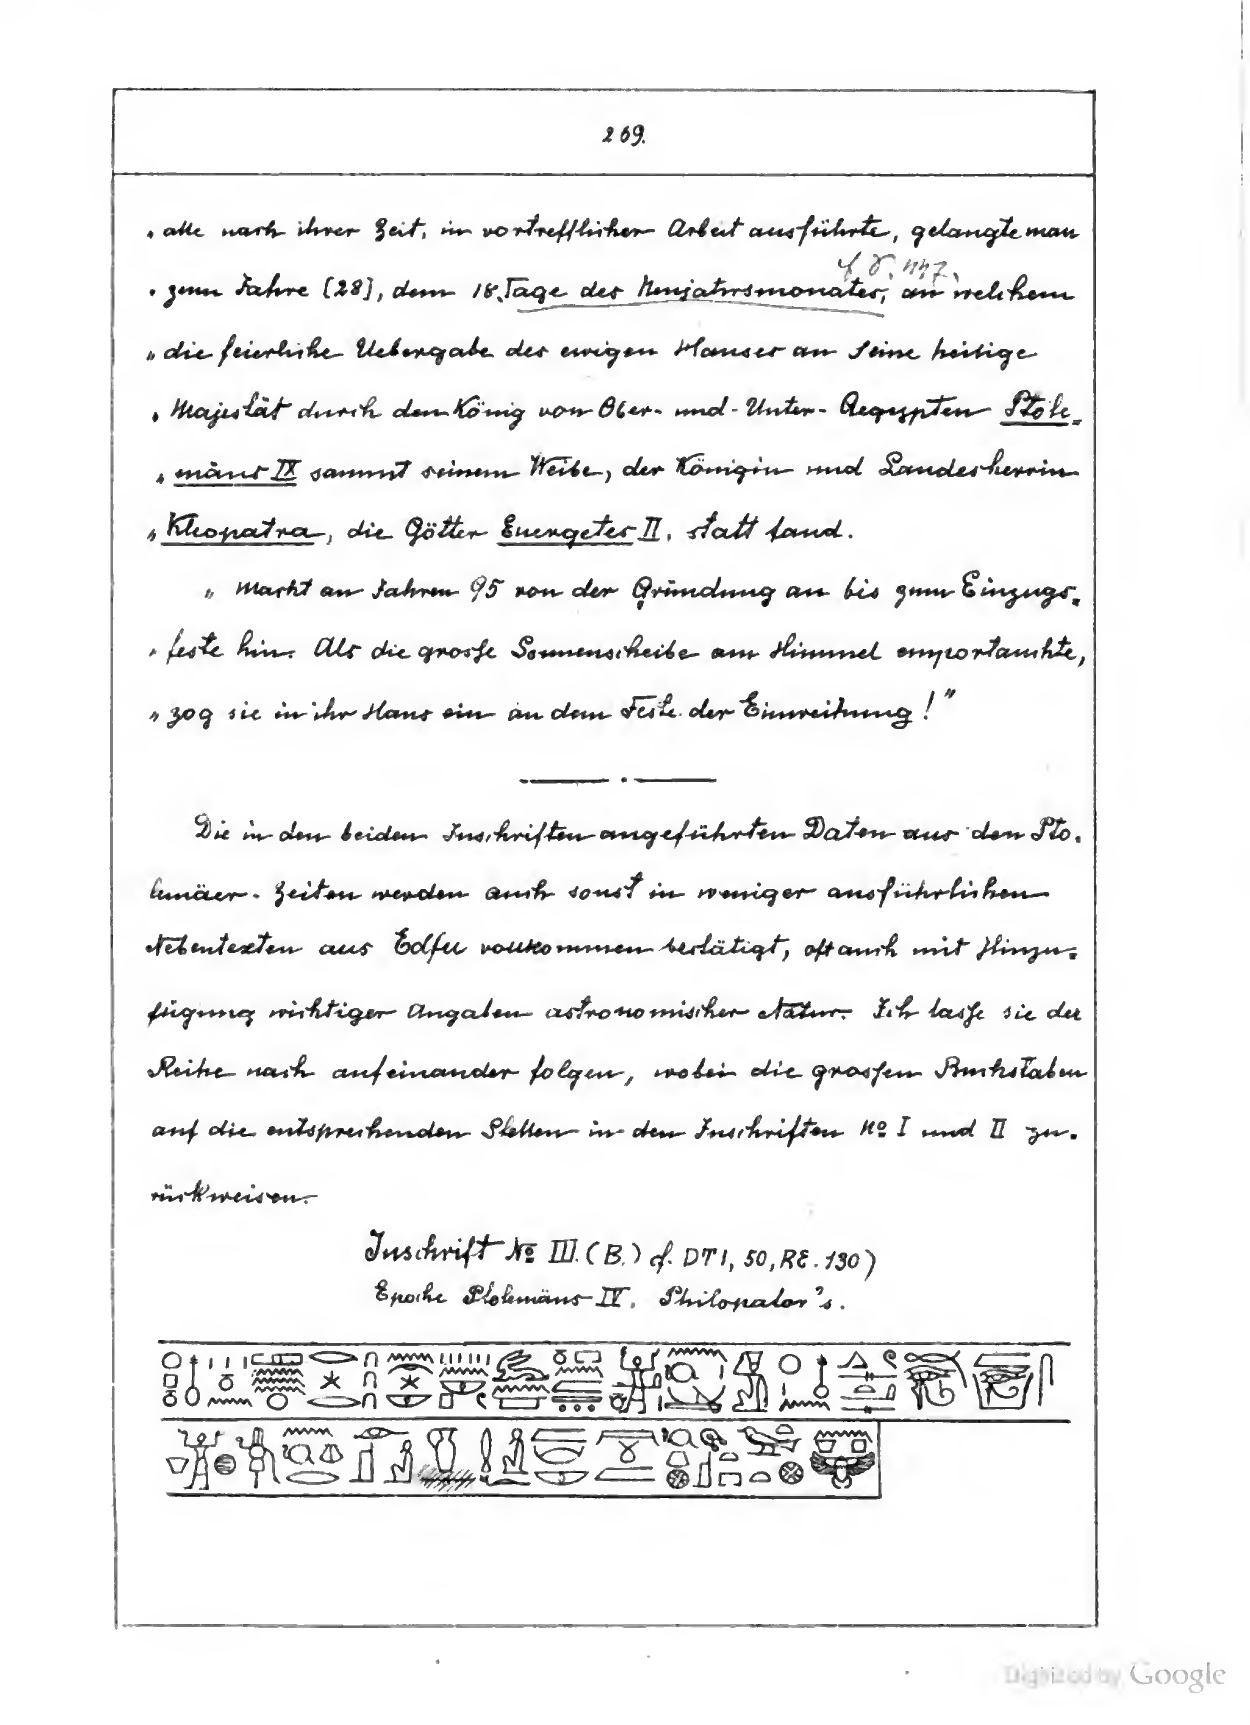 269.
„ alle nach ihrer Zeit, in vortrefflicher Arbeit ausführte, gelangte man
„ zum Jahre [28], dem 18. Tage des Neujahrsmonates, an welchem
„ die feierliche Uebergabe des ewigen Hauses an Seine heilige
„ Majestät durch den König von Ober- und Unter-Aegypten Ptole-
„ mäus IX sammt seinem Weibe, der Königin und Landesherrin
„ Kleopatra, die Götter Euergetes II, statt fand.
„ Macht an Jahren 95 von der Gründung an bis zum Einzugs-
„ feste hin. Als die grosse Sonnenscheibe am Himmel emportauchte,
„ zog sie in ihr Haus ein an dem Feste der Einweihung!"
Die in den beiden Inschriften angeführten Daten aus den Pto-
lemäer-Zeiten werden auch sonst in weniger ausführlichen
Nebentexten aus Edfu vollkommen bestätigt, oft auch mit Hinzu-
fügung wichtiger Angaben astronomischer Natur. Ich lasse sie der
Reihe nach aufeinander folgen, wobei die grossen Buchstaben
auf die entsprechenden Stellen in den Inschriften No I und II zu-
rückweisen.
Inschrift No III. (B.) cf. DTI, 50, RE. 130)
Epoche Ptolemäus IV. Philopator's.
Digitized by Google